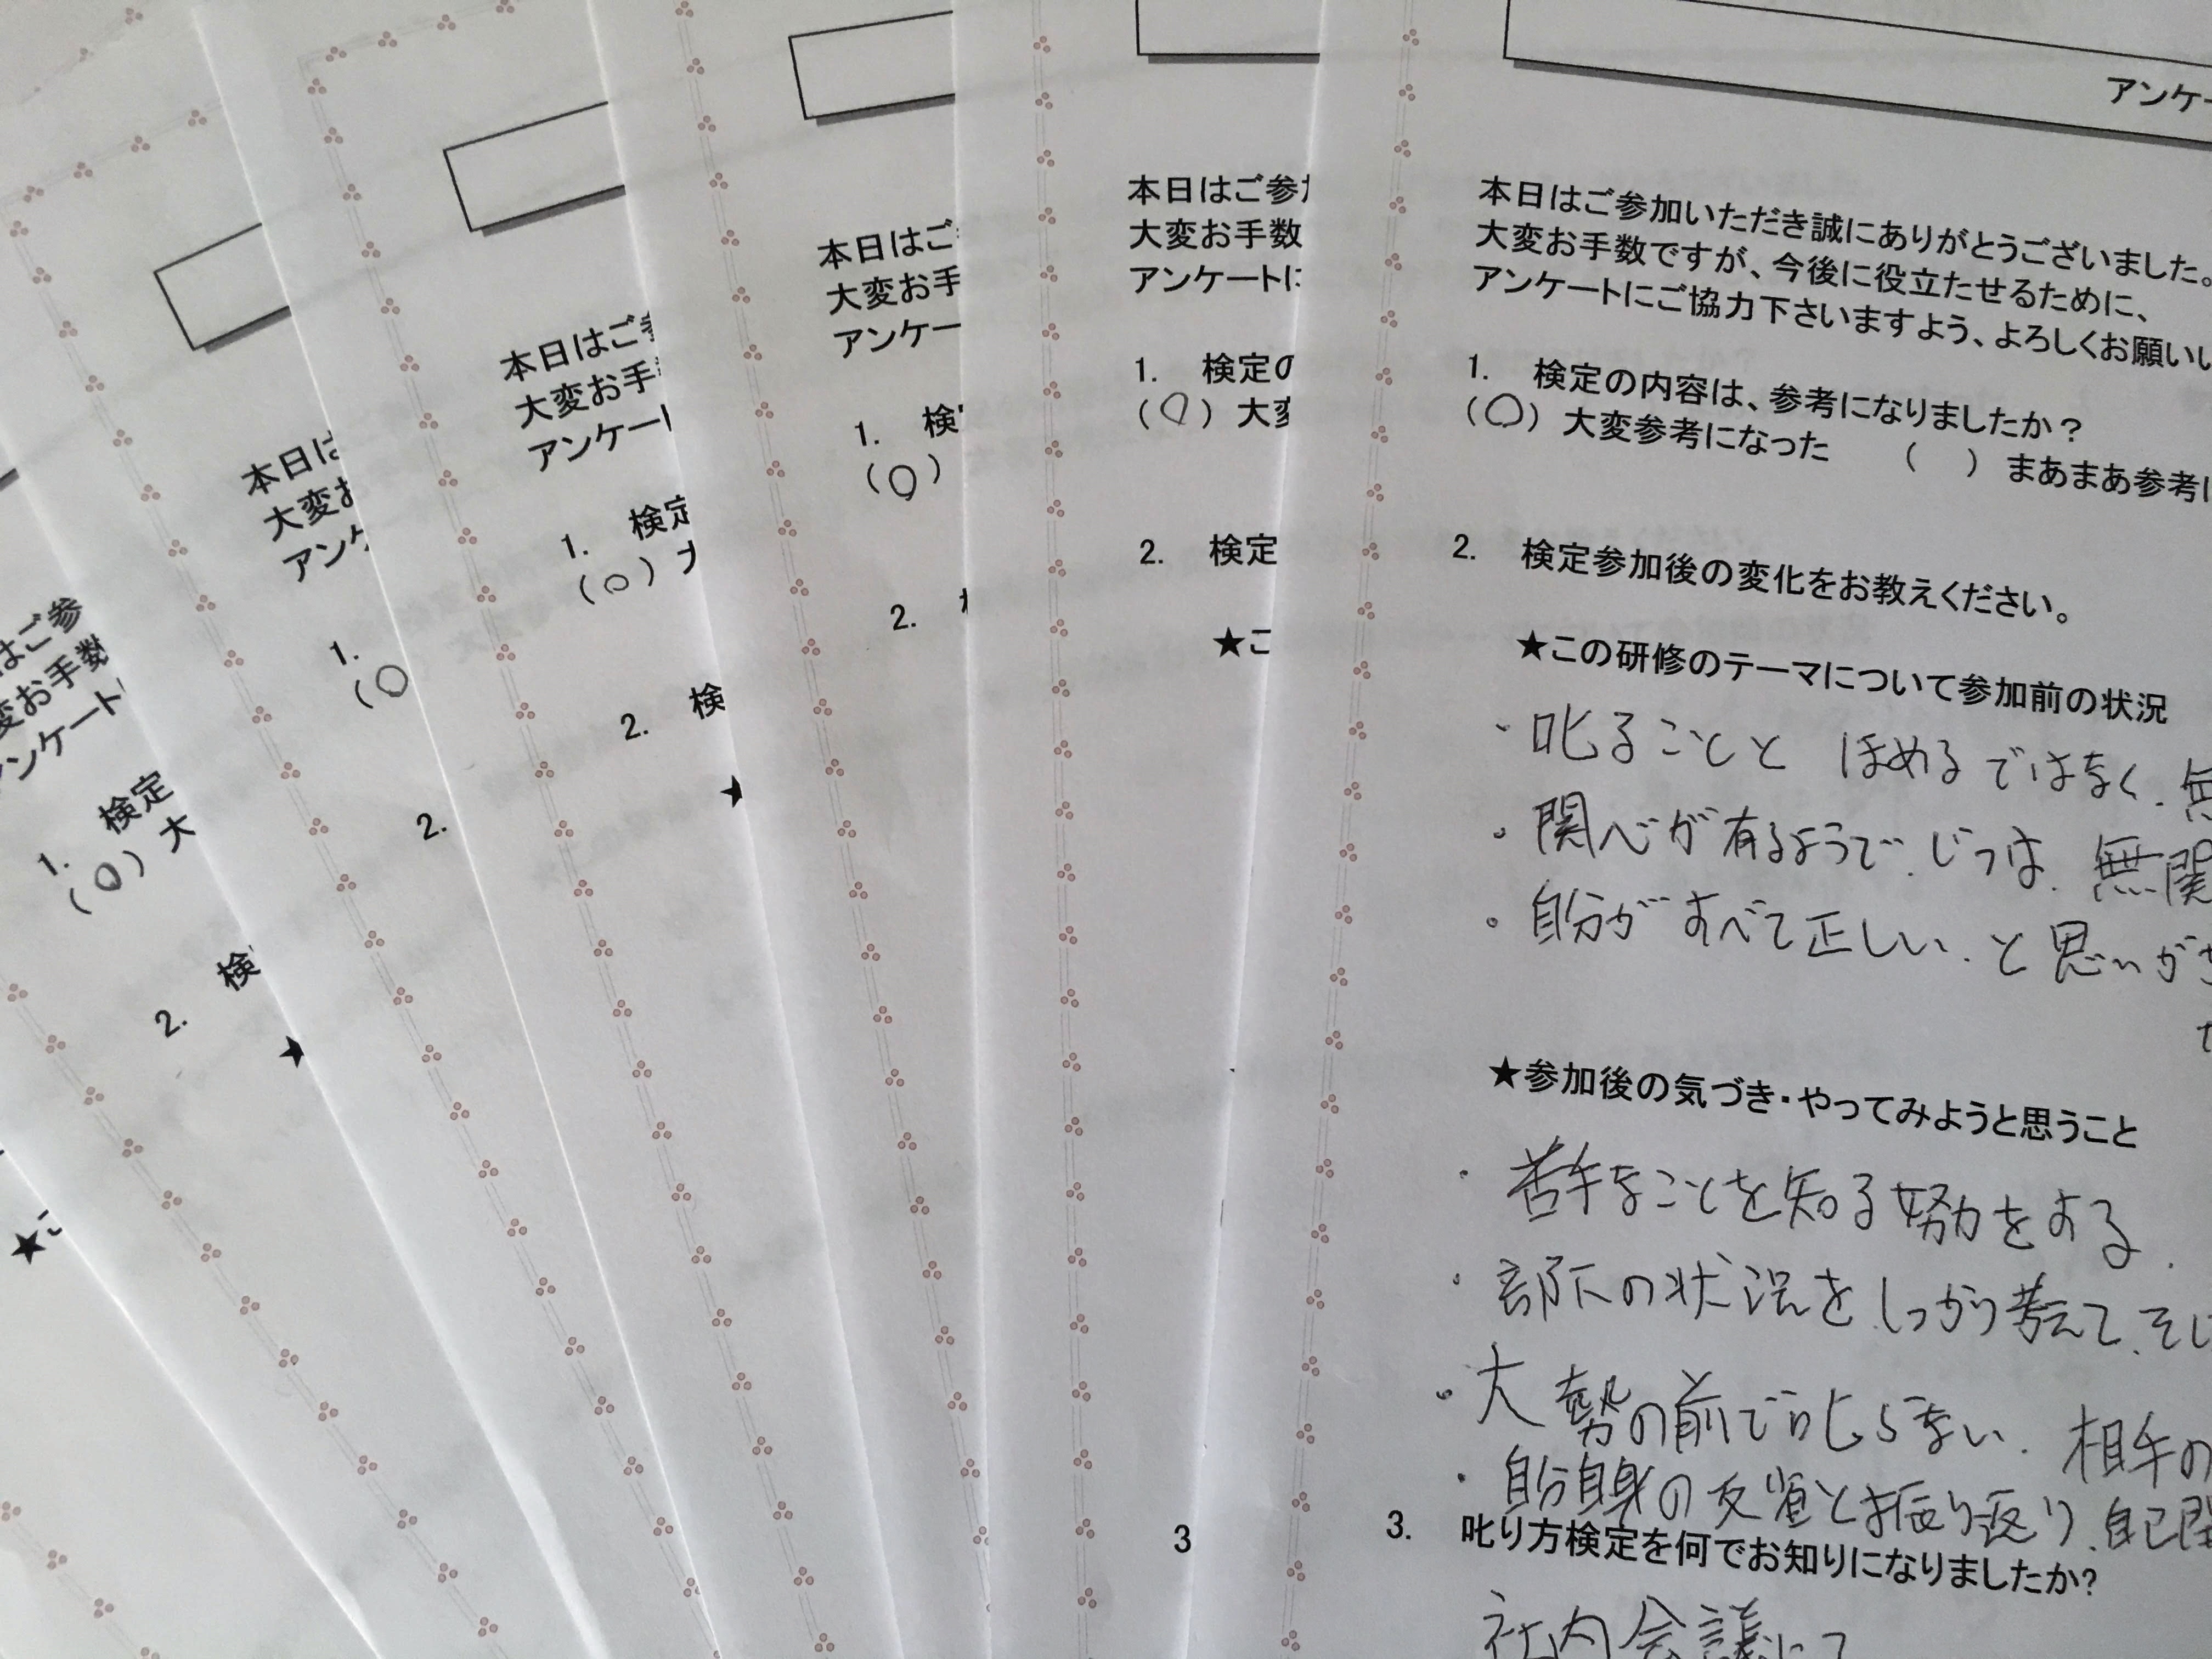 はご参
変お手数
ンケート
1. 検定
(○) 大
2. 検
★こ
本日は
大変お
アンケ
1.
(○
2.
★
本日はご
大変お手
アンケー
1. 検定
(○)
2. 検
★
本日はご
大変お手
アンケー
1. 検
(○)
2.
本日はご参
大変お手数
アンケートに
1. 検定の
(○) 大変
2. 検定
★こ
3
アンケー
本日はご参加いただき誠にありがとうございました。
大変お手数ですが、今後に役立たせるために、
アンケートにご協力下さいますよう、よろしくお願いい
1. 検定の内容は、参考になりましたか?
(○) 大変参考になった ( ) まあまあ参考に
2. 検定参加後の変化をお教えください。
★この研修のテーマについて参加前の状況
・叱ることと ほめるではなく、無
・関心が有るようで、じつは、無関
・自分がすべて正しい、と思いがち
★参加後の気づき・やってみようと思うこと
・苦手なことを知る努力をする.
・部下の状況をしっかり考えて、そし
・大勢の前で叱らない、相手の
・自分自身の反省と振り返り、自己開
3. 叱り方検定を何でお知りになりましたか?
社内会議にて